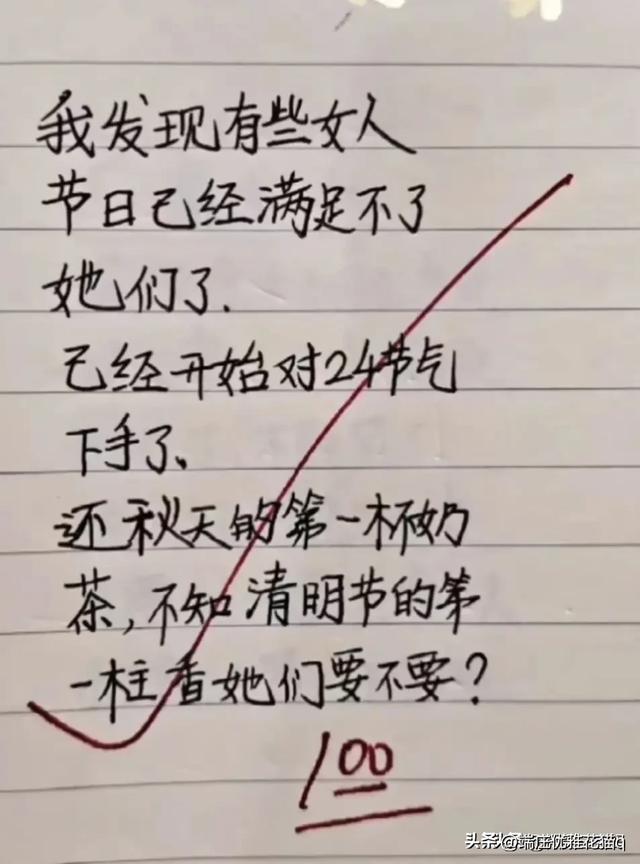 我发现有些女人
节日已经满足不了
她们了.
已经开始对24节气
下手了、
还秋天的第一杯奶
茶,不知清明节的第
一柱香她们要不要?
100
头条 @端庄优雅花猫q